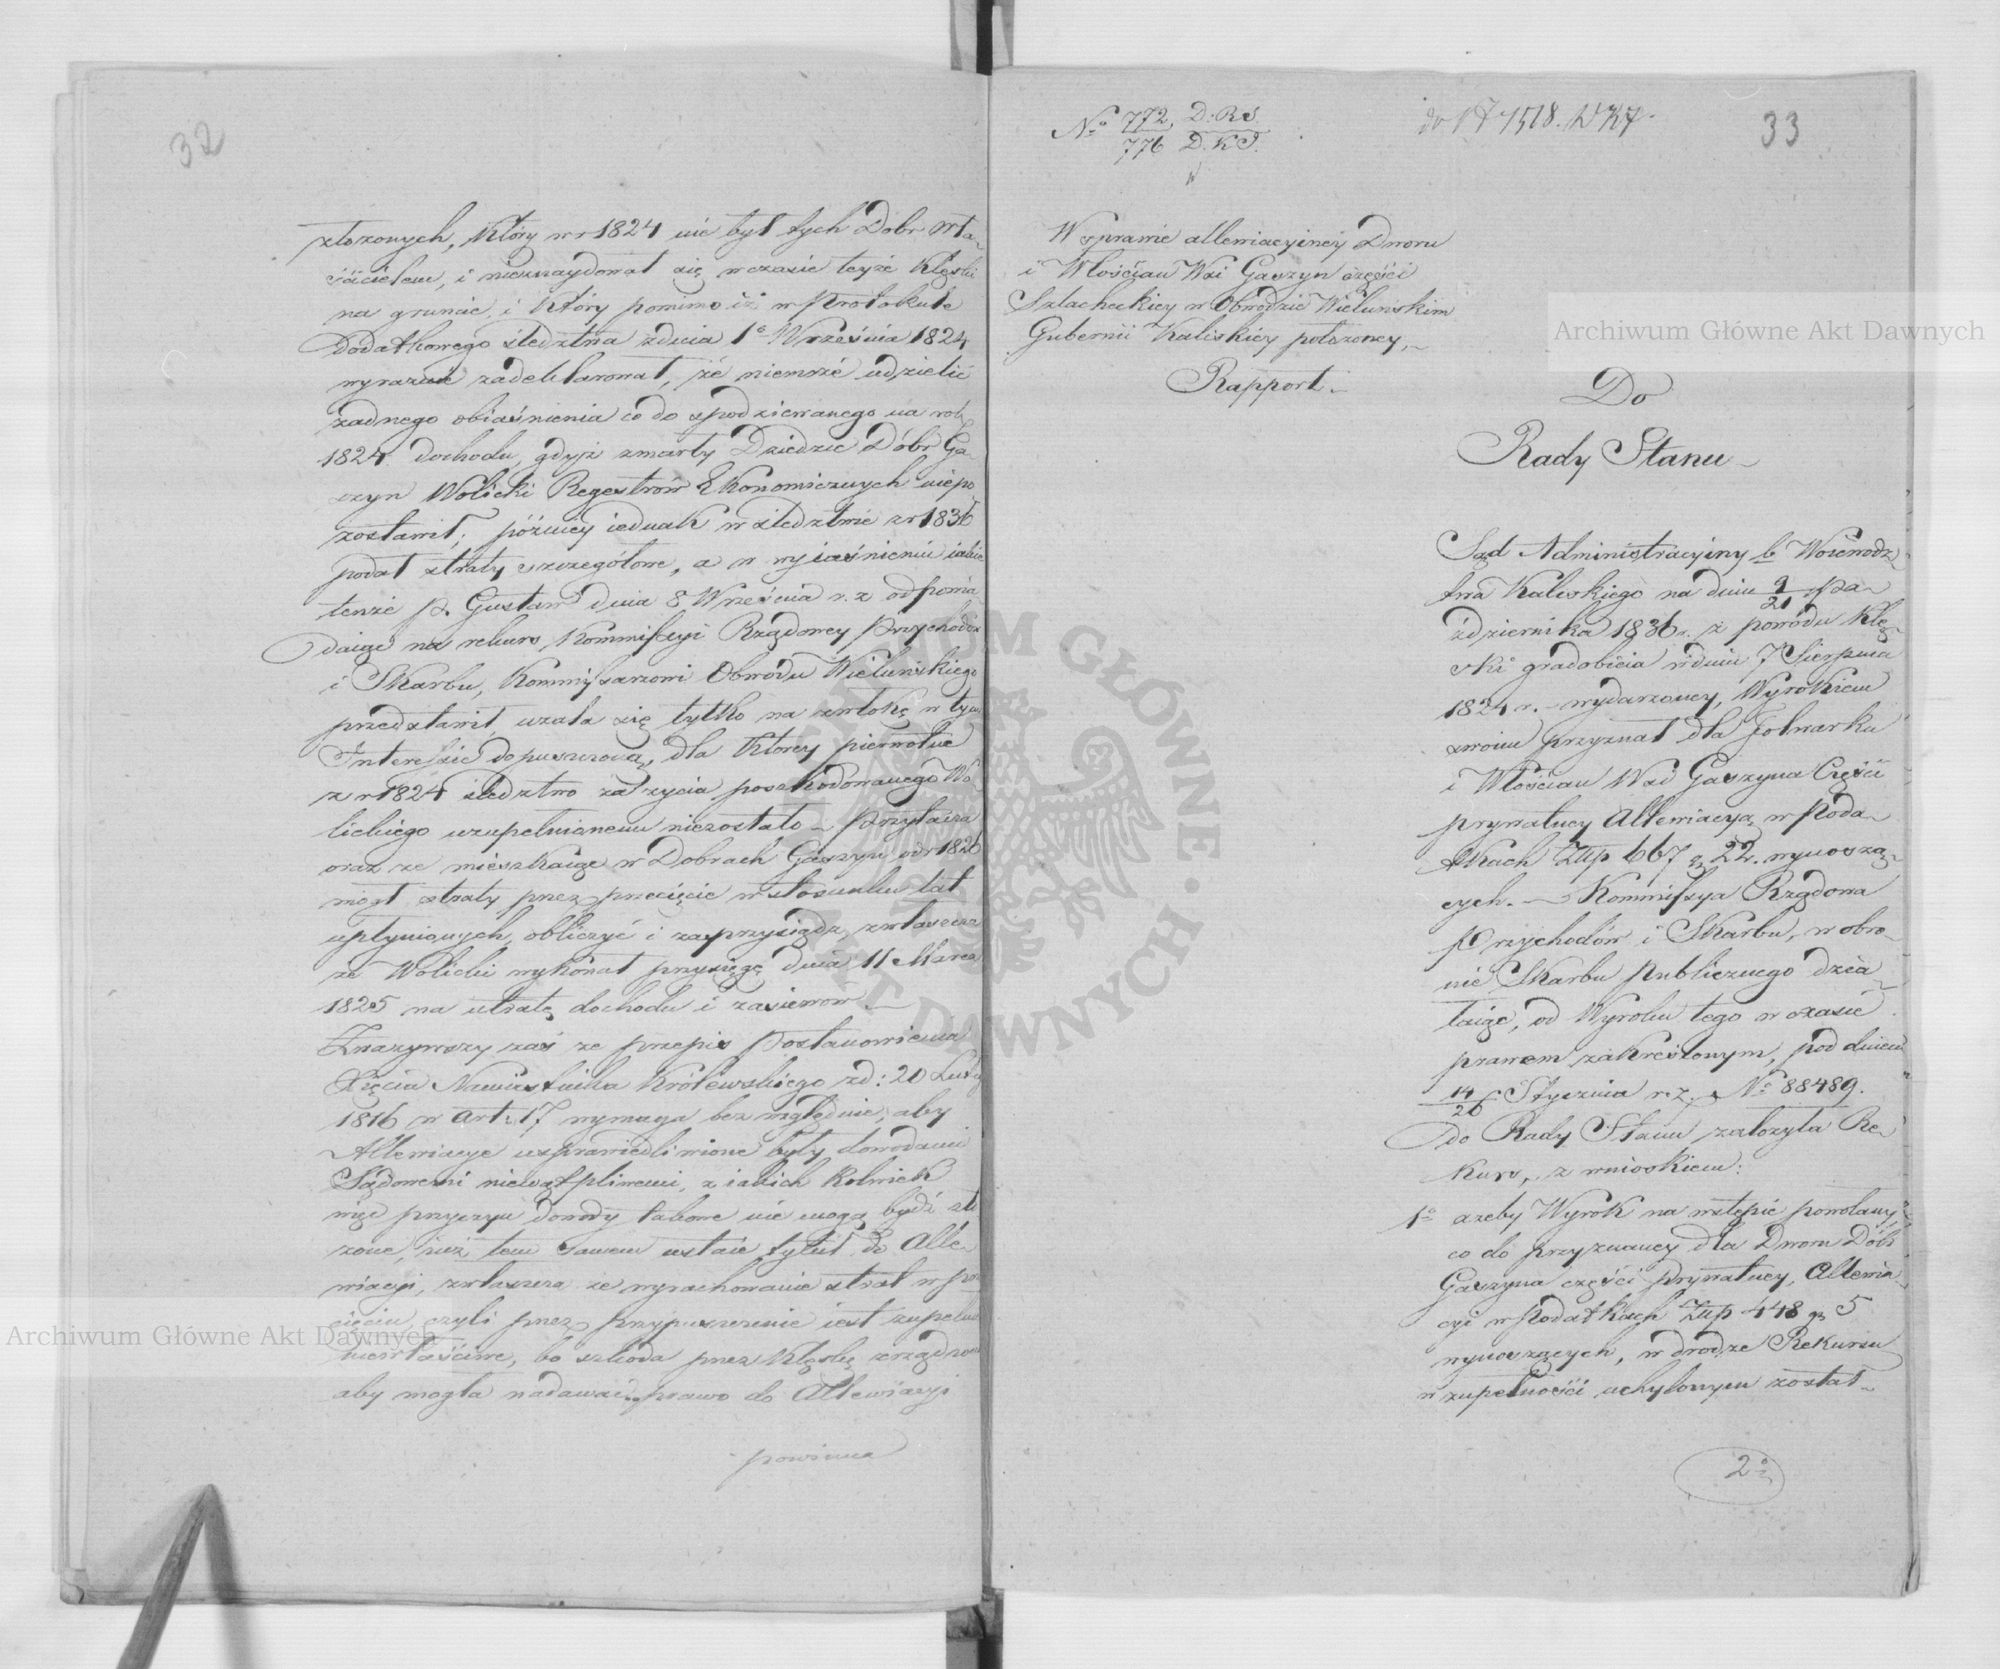 32
złożonych, który w r 1824 nie był tych Dobr Wła-
ścicielem, i nieznaydował się w czasie teyże Klęski
na gruncie, i który pomimo iż w Protokule
Dodatkowego śledztwa z dnia 1o Września 1824
wyraźnie zadeklarował, że niemoże udzielić
żadnego obiaśnienia co do spodziewanego na rok
1824 dochodu, gdyż zmarły Dziedzic Dóbr Ga-
szyn Wolicki Regestrów Ekonomicznych niepo
zostawił; późniey iednak w śledztwie z r 1836
podał straty szczegółowe, a w wyiaśnieniu iakie
tenże p. Gustaw dnia 8 Września r. z odpowia
daiąc na rekurs Kommissyi Rządowey Przychodów
i Skarbu, Kommissarzowi Obwodu Wieluńskiego
przedstawił, użala się tylko na zwłokę w tym
Interessie dopuszczoną, dla którey pierwotne
z r 1824 śledztwo za życia poszkodowanego Wo-
lickiego uzupełnionem niezostało – przytacza
oraz że mieszkaiąc w Dobrach Gaszyn od r 1826
mógł straty przez przecięcie w stosunku lat
upłynionych, obliczyć i zaprzysiądz, zwłaszcza
że Wolicki wykonał przysięgę dnia 11 Marca
1825 na utratę dochodu i zasiewów –
Zważywszy zaś że przepis Postanowienia
Xięcia Namiestnika Królewskiego z d: 20 Luty
1816 w art: 17 wymaga bezwzględnie, aby
Allewiacye usprawiedliwione były dowodami
Sądowemi niewątpliwemi, z iakich kolwiek
więc przyczyn dowody takowe nie mogą bydź zło
żone, iuż tem samem ustaie tytuł do Alle-
wiacyi, zwłaszcza że wyrachowanie strat w prze
cięciu, czyli przez przypuszczenie iest zupełnie
niewłaściwe, bo szkoda przez Klęskę zrządzona
aby mogła nadawać prawo do Allewiacyi
powinna
No 772 D: R S.
776 D. K S.
33
W sprawie allewiacyiney Dworu
i Włościan Wsi Gaszyn części
Szlacheckiey w Obwodzie Wieluńskim
Gubernii Kaliskiey położoney, –
Rapport –
Do
Rady Stanu –
Sąd Administracyiny b. Wojewodz-
twa Kaliskiego na dniu 9/21 Pa-
ździernika 1836 r. z powodu Klę-
ski gradobicia w dniu 7 Sierpnia
1824 r. – wydarzoney, Wyrokiem
swoim przyznał dla Folwarku
i Włościan Wsi Gaszyna Części
prywatney Allewiacyą w Poda-
tkach Złp 667 g 22. wynoszą-
cych. – Kommissya Rządowa
Przychodów i Skarbu, w obro-
nie Skarbu Publicznego dzia-
łaiąc, od Wyroku tego w czasie
prawem zakreślonym, pod dniem
14/26 Stycznia r. z. No 88489.
do Rady Stanu założyła Re-
kurs, z wnioskiem:
1o ażeby Wyrok na wstępie powołany
co do przyznaney dla Dworu Dóbr
Gaszyna części prywatney, Allewia-
cyi w Podatkach Złp 448 g 5
wynoszących, w drodze Rekursu
w zupełności uchylonym został –
2o
Archiwum Główne Akt Dawnych
Archiwum Główne Akt Dawnych
ARCHIWUM GŁÓWNE AKT DAWNYCH